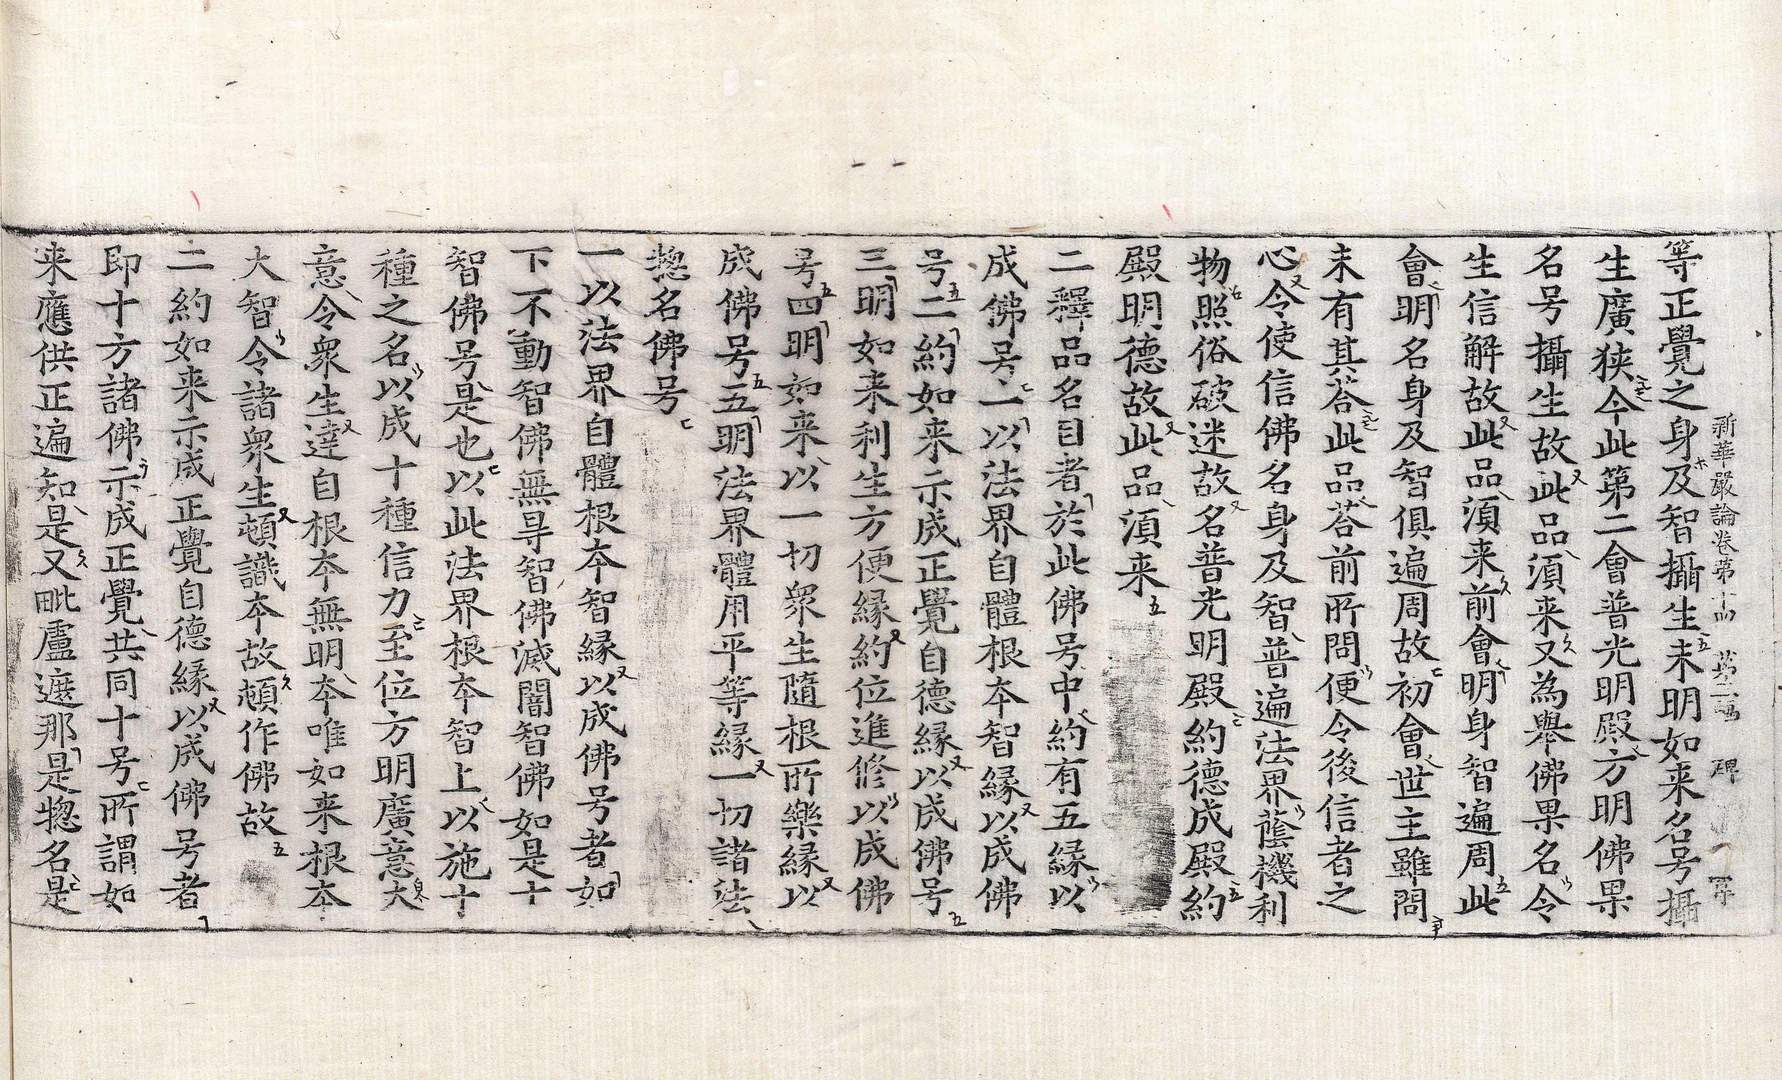 新華嚴論卷第十四
等正覺之身及智攝生未明如来名号攝
生廣狹今此第二會普光明殿方明佛果
名号攝生故此品湏来又為舉佛果名令
生信解故此品湏来前會明身智遍周此
會明名身及智俱遍周故初會世主雖問
未有其荅此品荅前所問便令後信者之
心令使信佛名身及智普遍法界蔭機利
物照俗破迷故名普光明殿約德成殿約
殿明德故此品湏来
二釋品名目者於此佛号中約有五緣以
成佛号一以法界自體根夲智緣以成佛
号二約如来示成正覺自德緣以成佛号
三明如来利生方便緣約位進修以成佛
号四明如来以一切衆生隨根所樂緣以
成佛号五明法界體用平等緣一切諸法
揔名佛号
一以法界自體根夲智緣以成佛号者如
下不動智佛無㝵智佛滅闇智佛如是十
智佛号是也以此法界根夲智上以施十
種之名以成十種信力至位方明廣意大
意令衆生達自根夲無明夲唯如来根夲
大智令諸衆生頓識夲故頓作佛故
二約如来示成正覺自德緣以成佛号者
即十方諸佛示成正覺共同十号所謂如
来應供正遍知是又毗盧遮那是揔名是